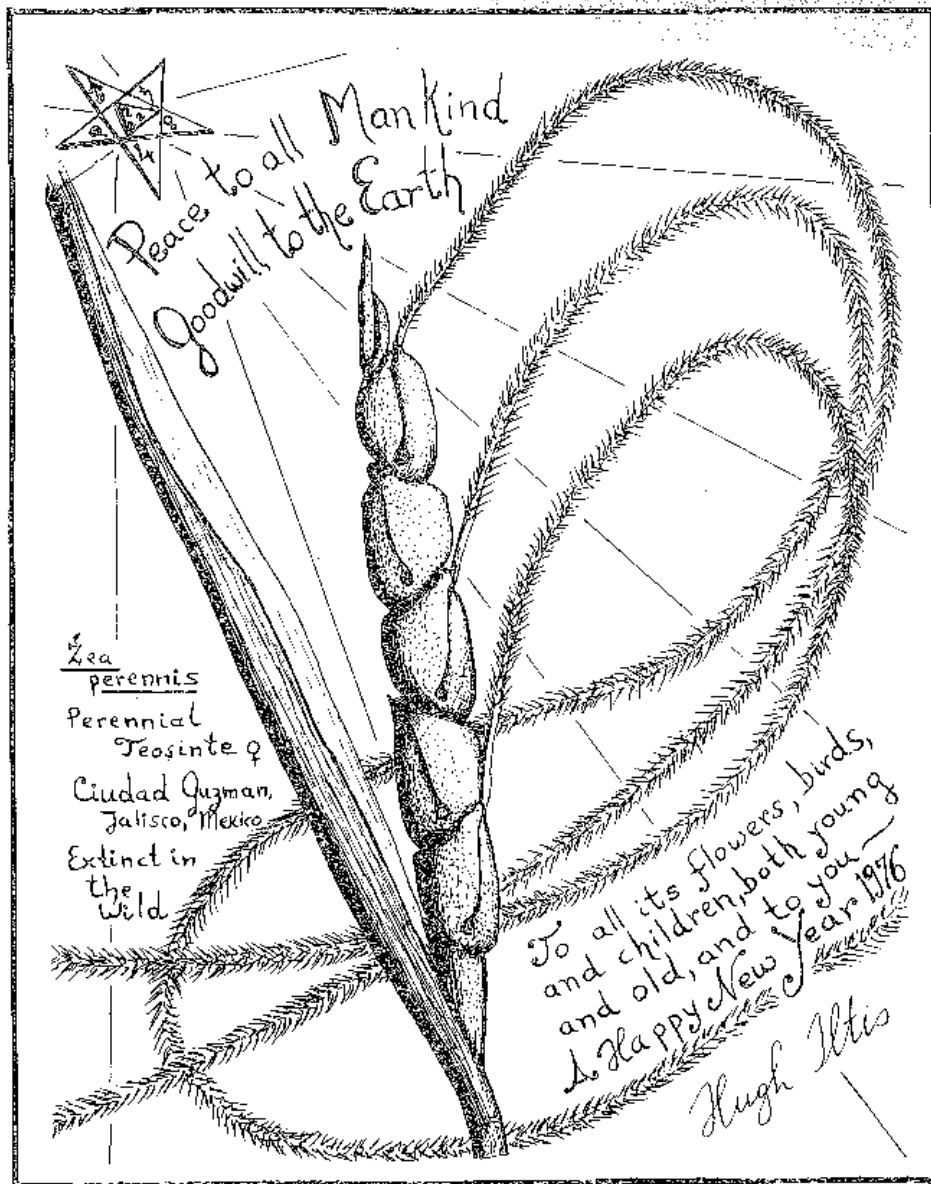 Peace to all Mankind
Goodwill to the Earth
Zea
perennis
Perennial
Teosinte ♀
Ciudad Guzman,
Jalisco, Mexico
Extinct in
the
Wild
To all its flowers, birds,
and children, both young
and old, and to you—
A Happy New Year 1976
Hugh Iltis